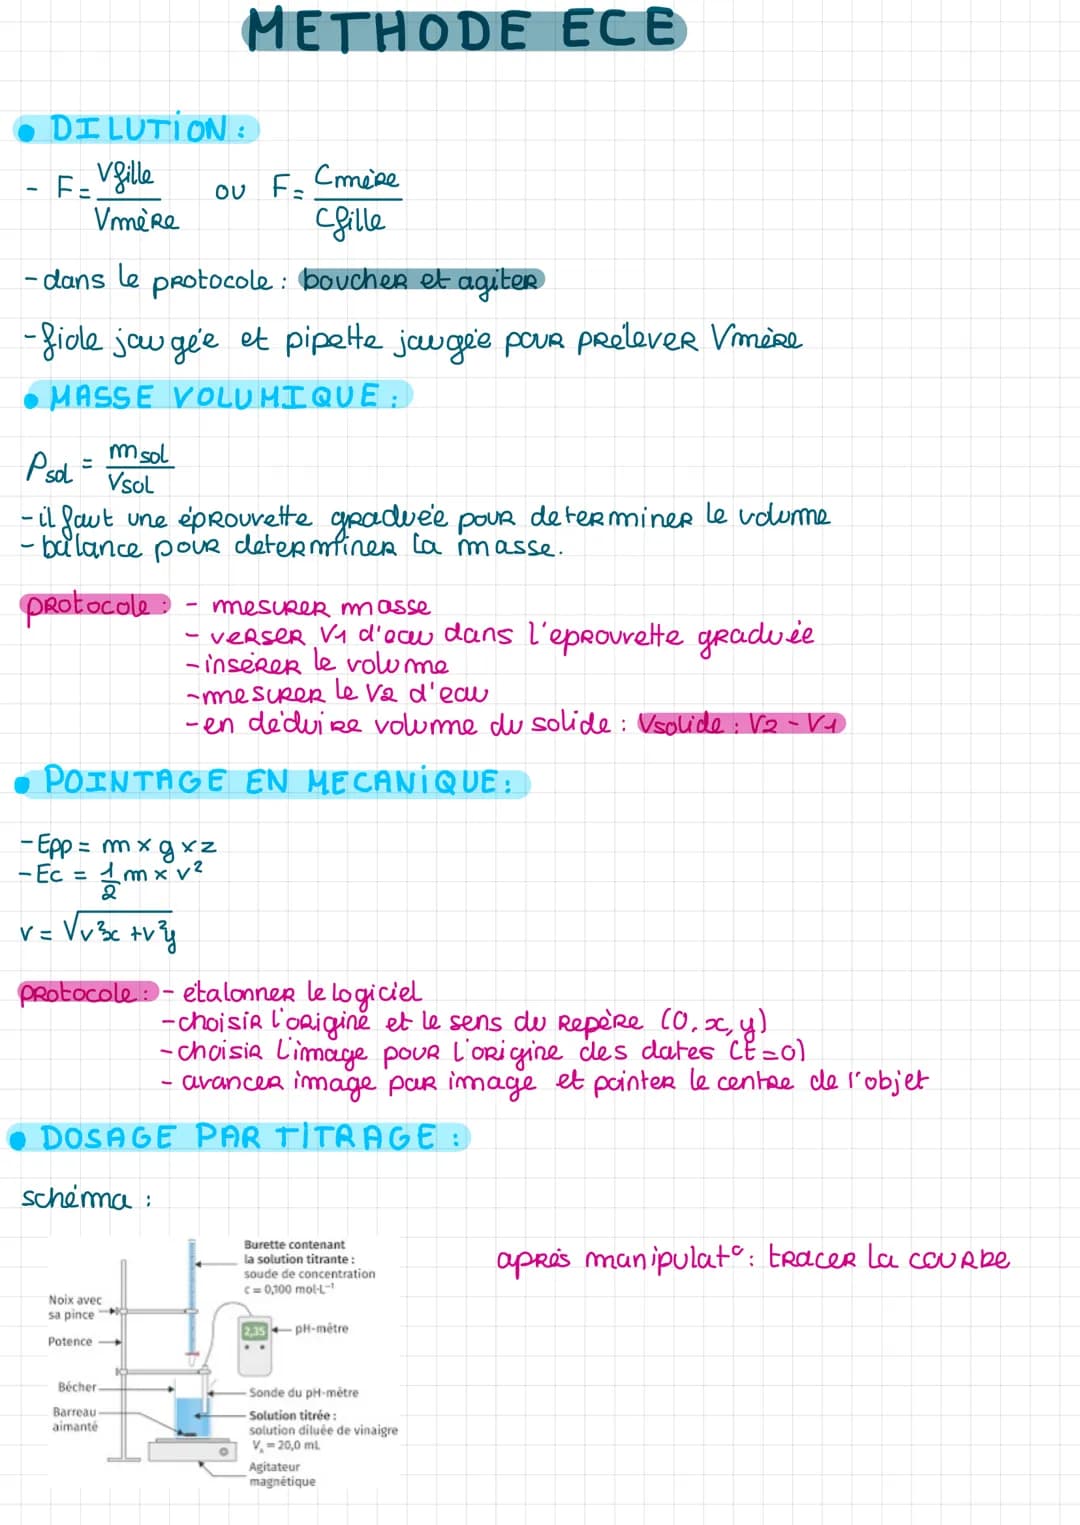 METHODE ECE
• DILUTION :
- F = Vfille / Vmère ou F = Cmère / Cfille
- dans le protocole : boucher et agiter
- fiole jaugée et pipette jaugée pour prélever Vmère
• MASSE VOLUMIQUE :
ρsol = msol / Vsol
- il faut une éprouvette graduée pour determiner le volume
- balance pour determiner la masse.
protocole : - mesurer masse
- verser V1 d'eau dans l'eprouvette graduée
- insérer le volume
- mesurer le V2 d'eau
- en déduire volume du solide : Vsolide : V2 - V1
• POINTAGE EN MECANIQUE :
- Epp = m x g x z
- Ec = 1/2 m x v²
v = √v²x + v²y
protocole : - étalonner le logiciel
- choisir l'origine et le sens du repère (O, x, y)
- choisir l'image pour l'origine des dates (t = 0)
- avancer image par image et pointer le centre de l'objet
• DOSAGE PAR TITRAGE :
schéma :
Burette contenant
la solution titrante :
soude de concentration
c = 0,100 mol·L⁻¹
Noix avec
sa pince
2,35
pH-mètre
Potence
Bécher
Sonde du pH-mètre
Barreau
aimanté
Solution titrée :
solution diluée de vinaigre
Vₐ = 20,0 mL
Agitateur
magnétique
après manipulat° : tracer la courbe